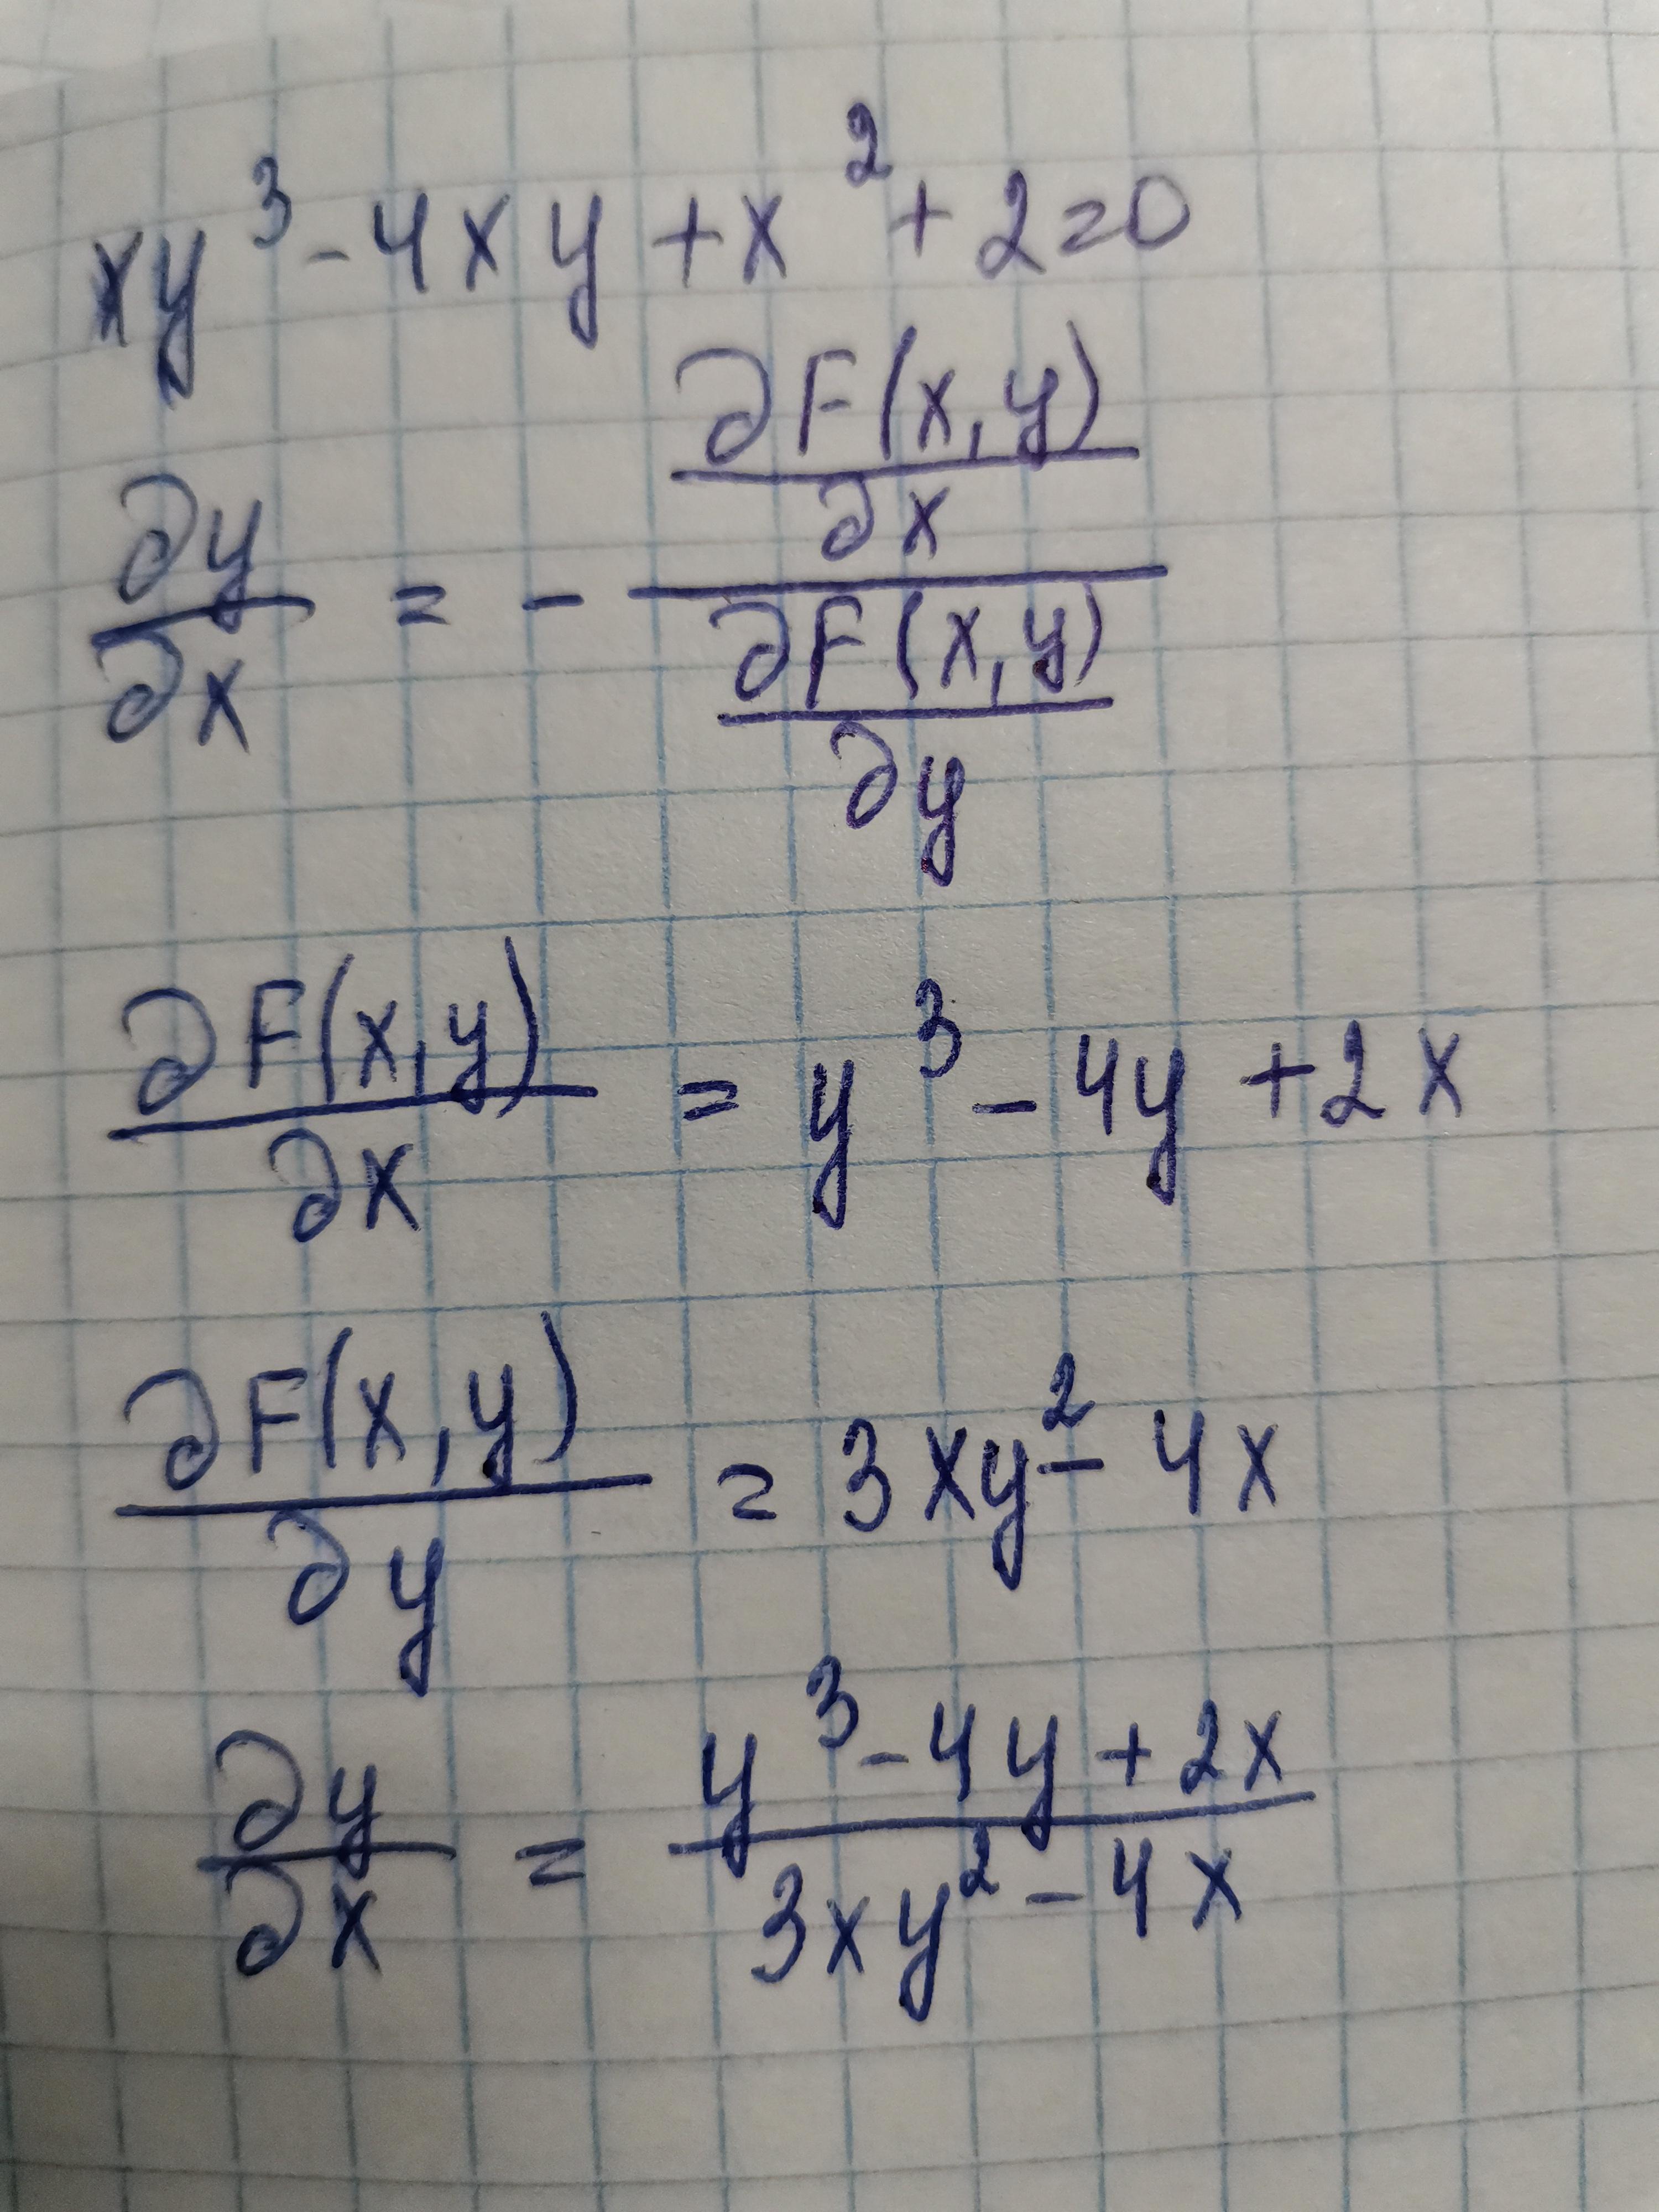 xy³ - 4xy + x² + 2 = 0
∂y/∂x = - (∂F(x,y)/∂x)/(∂F(x,y)/∂y)
∂F(x,y)/∂x = y³ - 4y + 2x
∂F(x,y)/∂y = 3xy² - 4x
∂y/∂x = (y³ - 4y + 2x)/(3xy² - 4x)